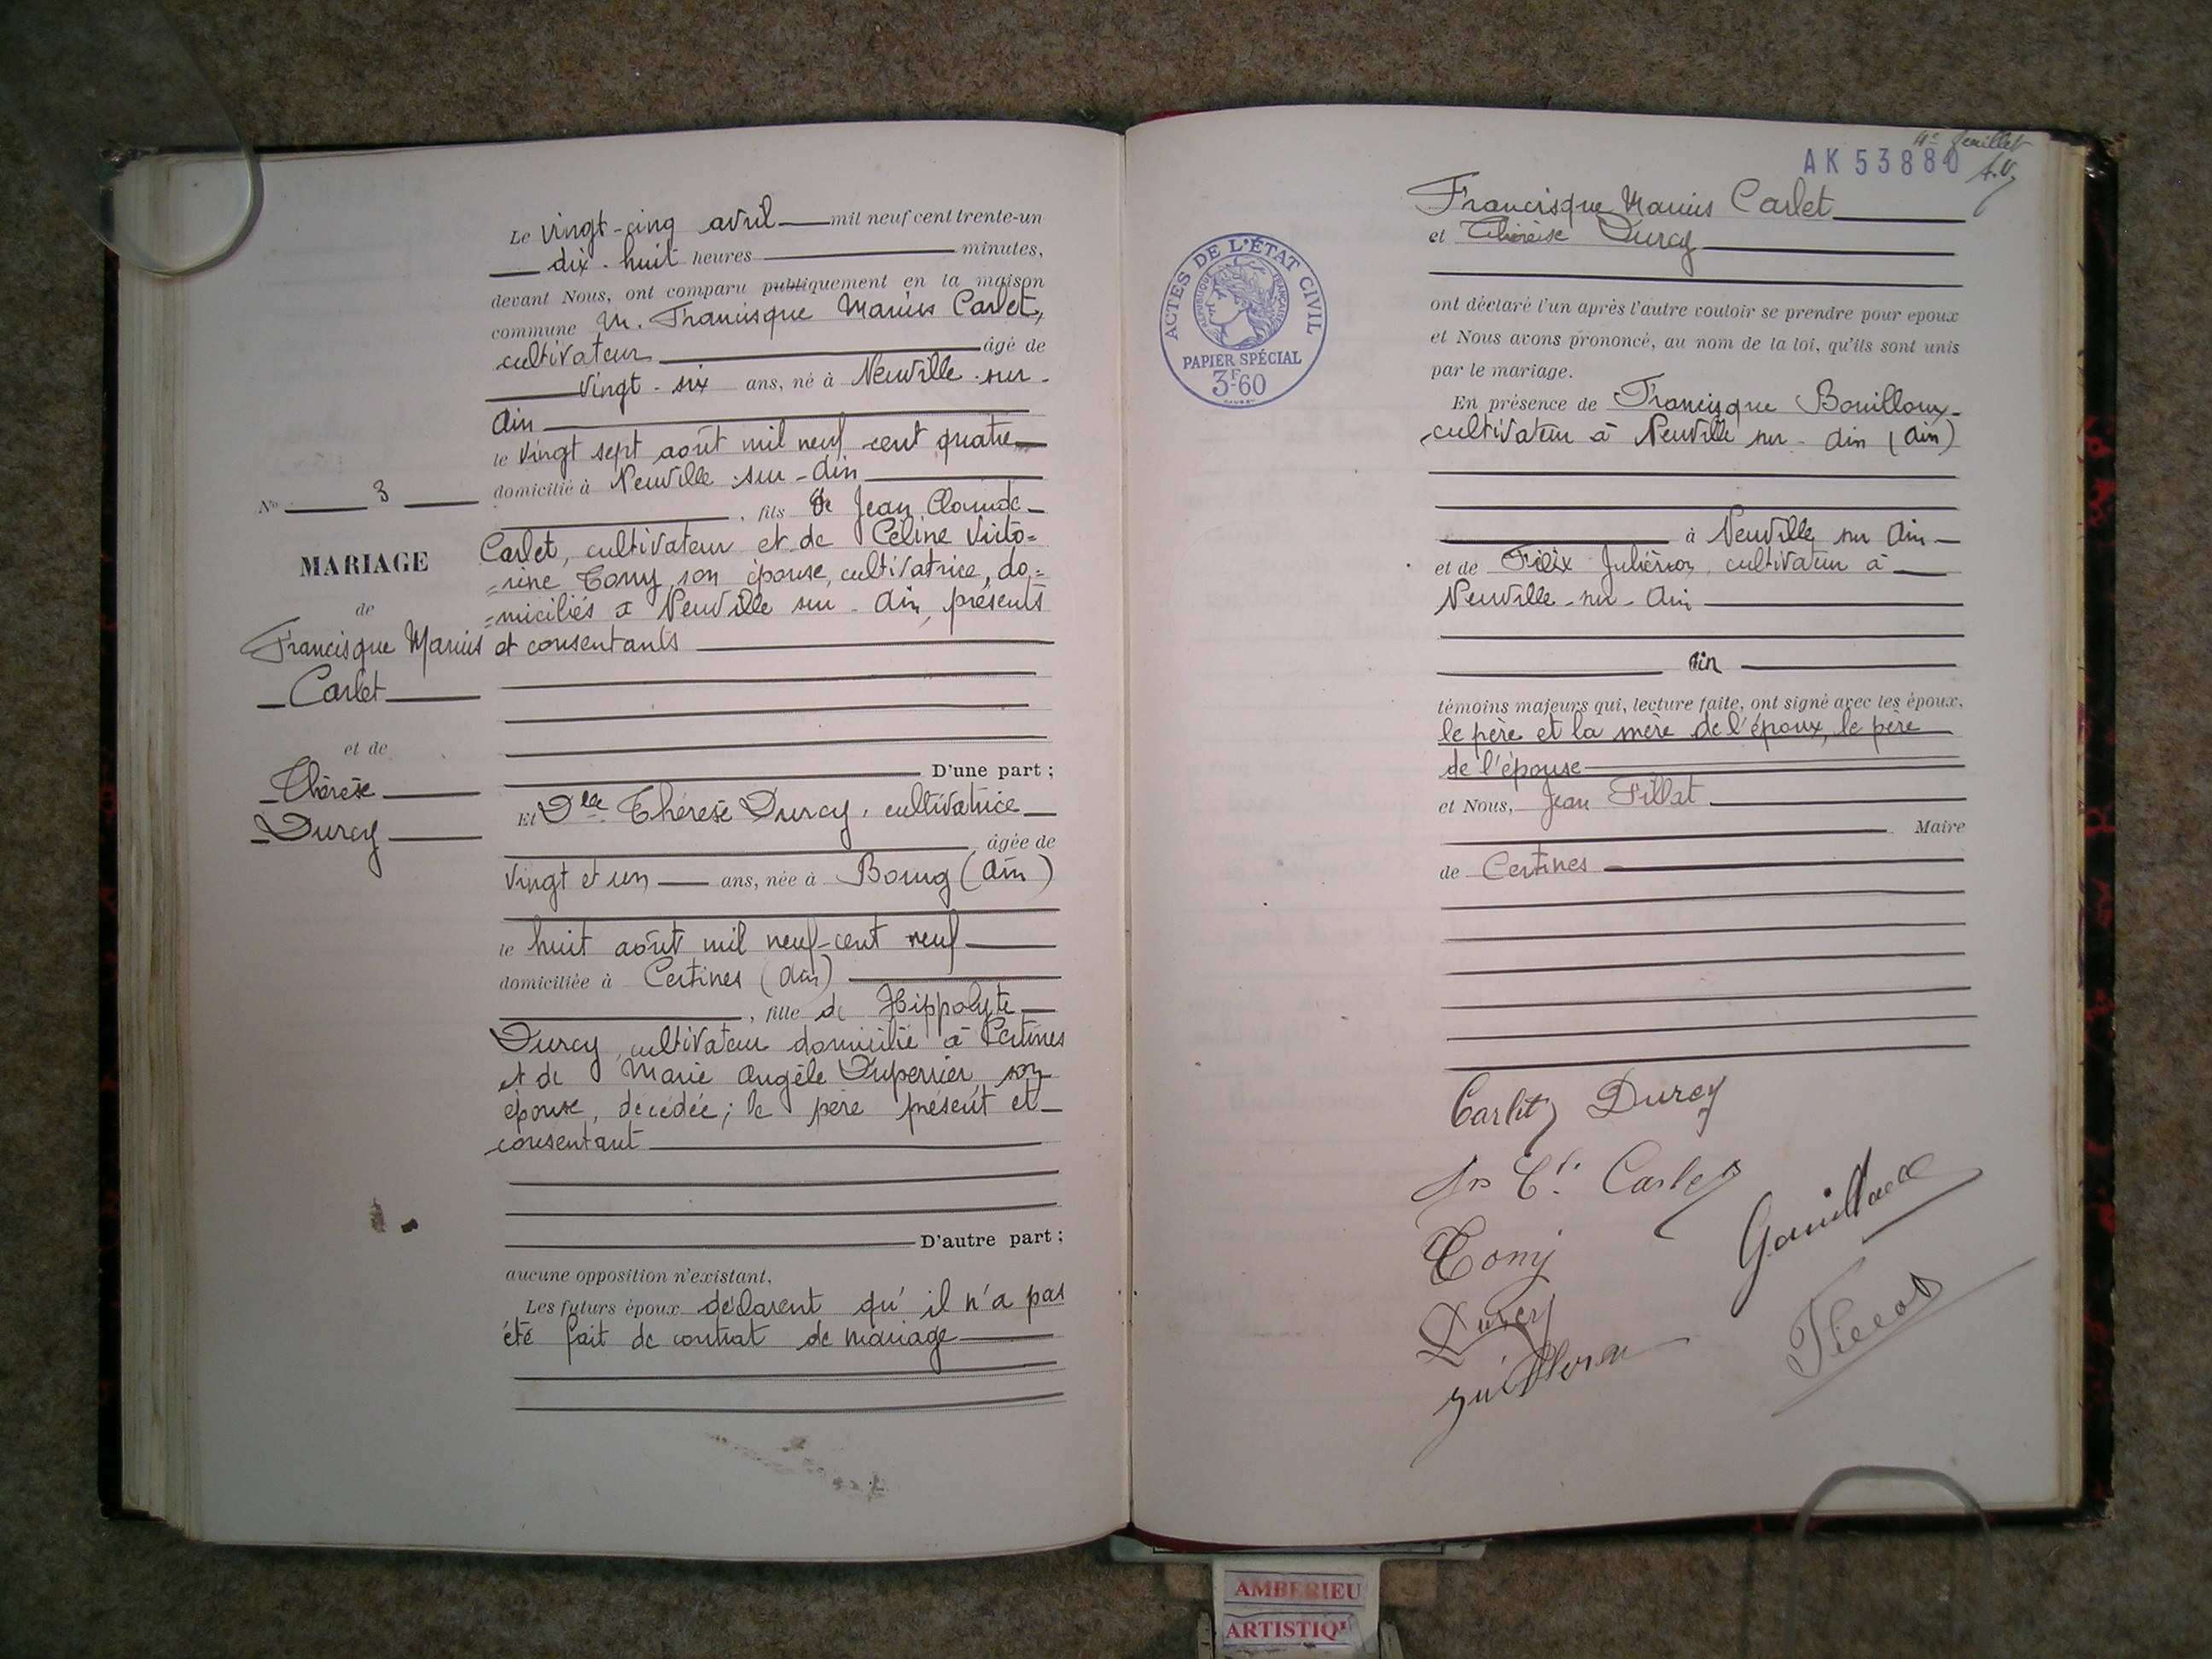 Le vingt-cinq avril mil neuf cent trente-un
dix-huit heures minutes,
devant Nous, ont comparu publiquement en la maison
commune M. Francisque Marius Carlet,
cultivateur âgé de
vingt-six ans, né à Neuville-sur-
Ain
le vingt sept août mil neuf cent quatre
domicilié à Neuville-sur-Ain
, fils de Jean Claude
Carlet, cultivateur et de Céline Victo=
=rine Tony, son épouse, cultivatrice, do=
=miciliés à Neuville sur-Ain, présents
et consentants
D'une part ;
Et Dlle Thérèse Durcy, cultivatrice
âgée de
vingt et un ans, née à Bourg (Ain)
le huit août mil neuf-cent neuf
domiciliée à Certines (Ain)
, fille de Hippolyte
Durcy, cultivateur domicilié à Certines
et de Marie Angèle Duperrier, son
épouse, décédée; le père présent et
consentant
D'autre part ;
aucune opposition n'existant,
Les futurs époux déclarent qu'il n'a pas
été fait de contrat de mariage
No 3
MARIAGE
de
Francisque Marius
Carlet
et de
Thérèse
Durcy
4e feuillet
AK 53880
Francisque Marius Carlet
et Thérèse Durcy
ont déclaré l'un après l'autre vouloir se prendre pour époux
et Nous avons prononcé, au nom de la loi, qu'ils sont unis
par le mariage.
En présence de Francisque Bouilloux
cultivateur à Neuville sur-Ain (Ain)
à Neuville sur Ain
et de Félix cultivateur à
Neuville-sur-Ain
Ain
témoins majeurs qui, lecture faite, ont signé avec les époux,
le père et la mère de l'époux, le père
de l'épouse
et Nous, Jean Tillat
Maire
de Certines
ACTES DE L'ÉTAT CIVIL
RÉPUBLIQUE FRANÇAISE
PAPIER SPÉCIAL
3F60
Carlet Durcy
Carlet
Tony
Durcy
AMBERIEU
ARTISTIQ